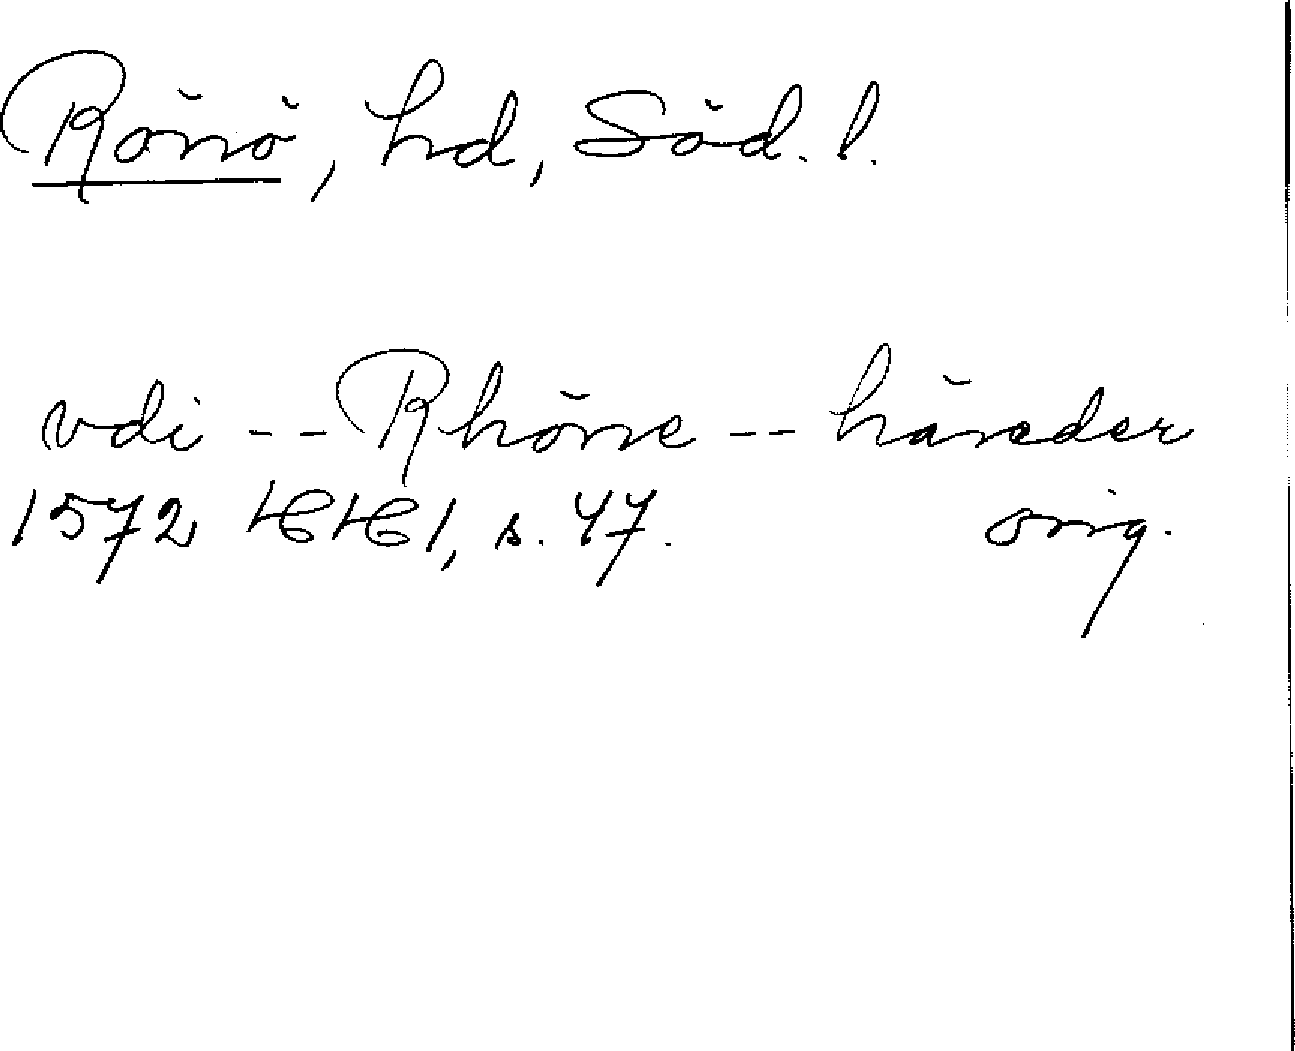 Rönö, hd, Söd. l.
vdi -- Rhöne -- häreder
1572 HH 1, s. 47. orig.